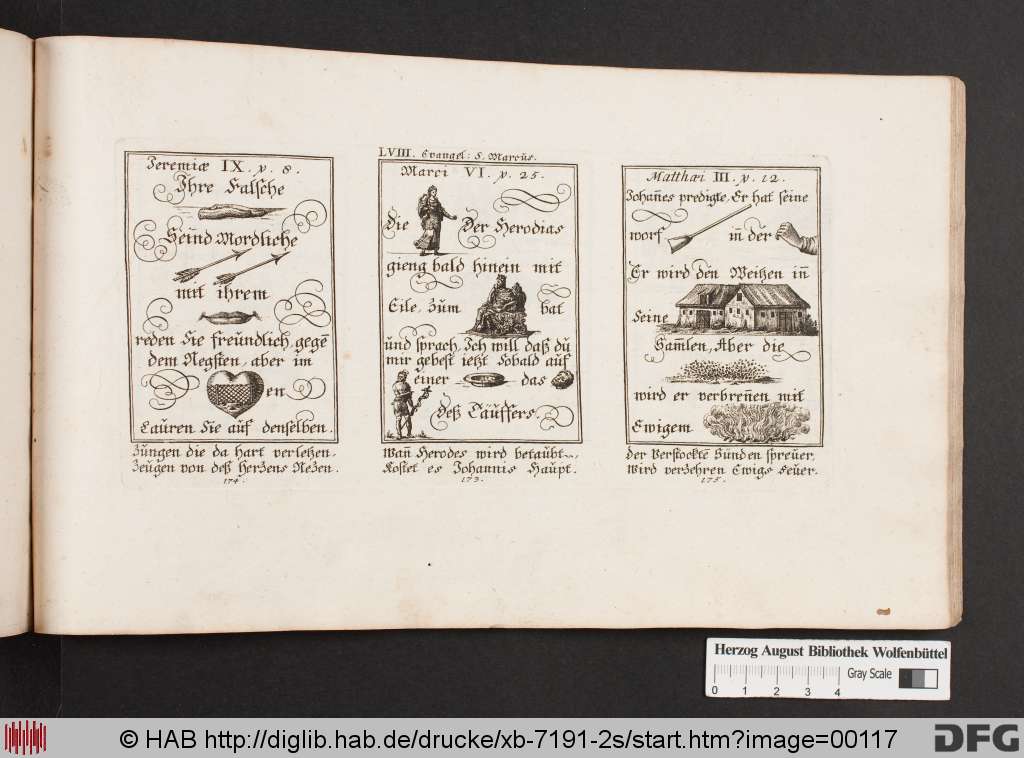 Jeremiæ IX. v. 8.
Ihre Falsche
Seind Mordliche
mit ihrem
reden Sie freündlich gegē
dem Negsten, aber im
en
Lauren Sie auf denselben.
Züngen die da hart verletzen,
Zeügen von deß Herzens Nezen.
174.
LVIII. Evangel: S. Marcüs.
Marci VI. v. 25.
Die Der Herodias
gieng bald hinein mit
Eile, Züm bat
und sprach, Ich will daß dü
mir gebest ietzt Sobald auf
einer das
Deß Täüffers.
Wan̄ Herodes wird betaübt,
Kostet es Johannis Haupt.
173.
Matthæi III. v. 12.
Johan̄es predigte, Er hat seine
worf in̄ der
Er wird den Weitzen in̄
Seine
Sam̄len, Aber die
wird er verbren̄en mit
Ewigem
der Verstockte Sünden spreüer,
Wird verzehren Ewigs Feüer.
175.
Herzog August Bibliothek Wolfenbüttel
Gray Scale
0 1 2 3 4
© HAB http://diglib.hab.de/drucke/xb-7191-2s/start.htm?image=00117
DFG